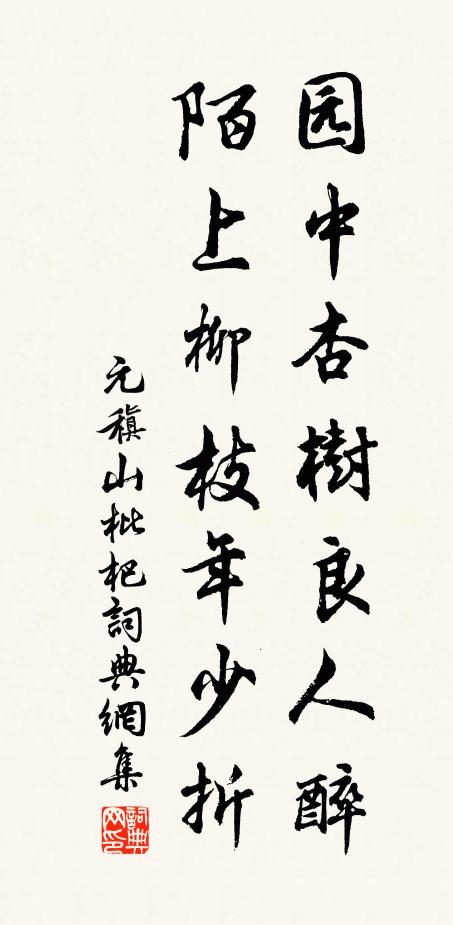 园中杏樹良人醉
陌上柳枝年少折
元稹山枇杷詞典網集
詞典网印